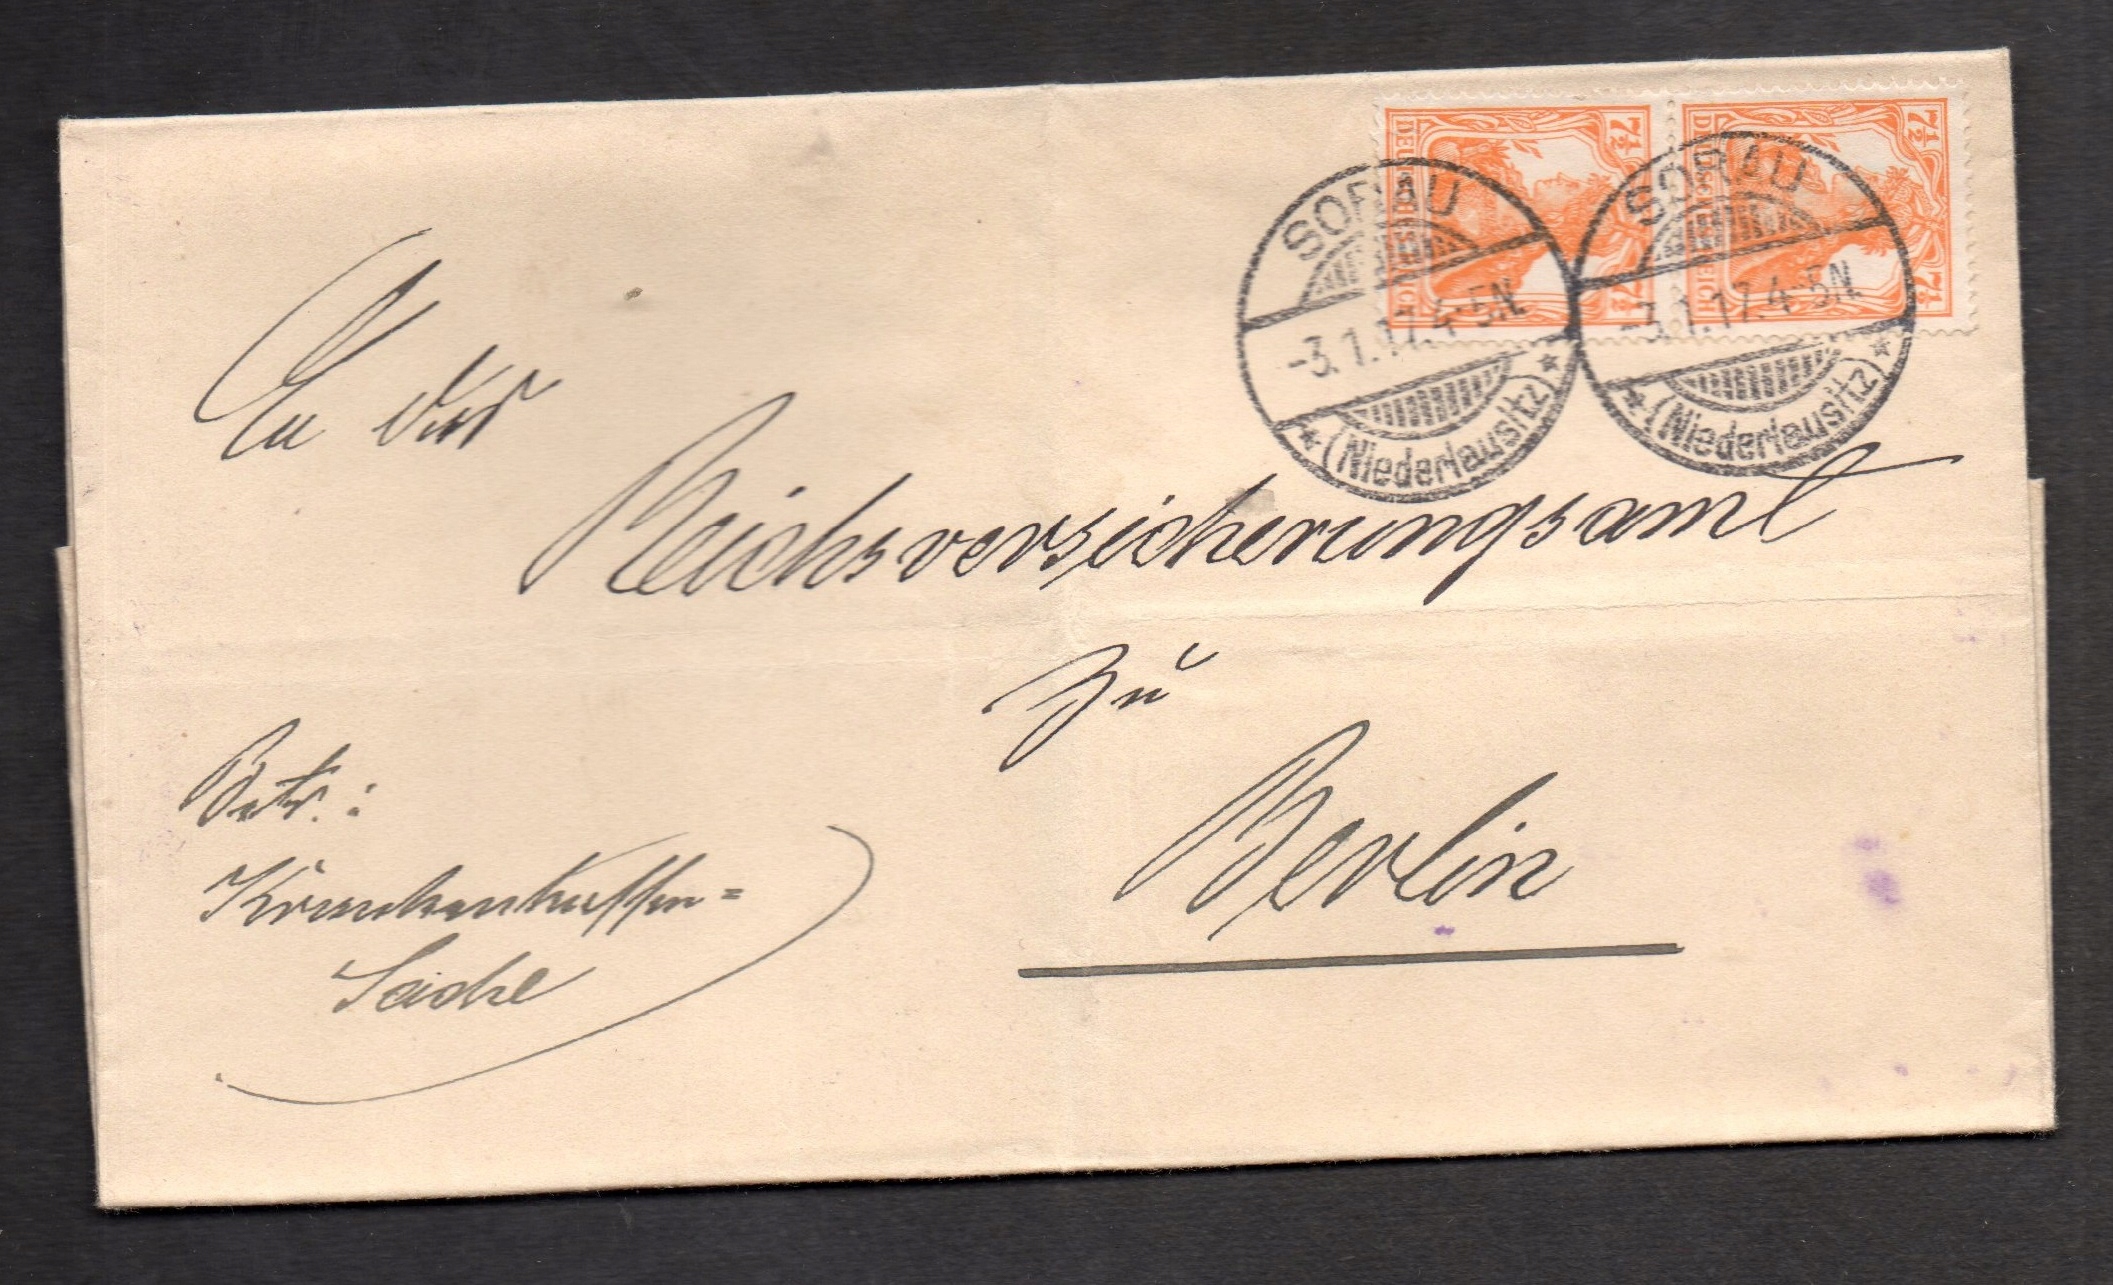 DEUTSCHES REICH 7½ 7½
DEUTSCHES REICH 7½ 7½
SORAU
-3.1.17.4-5N.
* (Niederlausitz) *
SORAU
-3.1.17.4-5N.
* (Niederlausitz) *
An das
Reichsversicherungsamt
zu
Berlin
Betr.:
Krankenkassen=
Sache